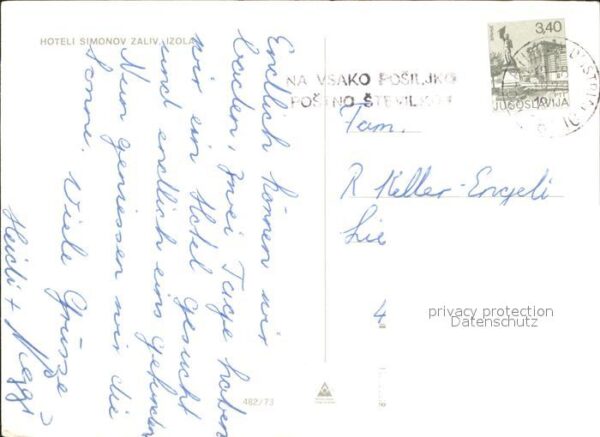 HOTELI SIMONOV ZALIV, IZOLA
Endlich können wir
baden, zwei Tage haben
wir ein Hotel gesucht
und endlich eins gefunden
Nun geniessen wir die
Sonne. Viele Grüsse
Heidi +
3,40
JUGOSLAVIJA
NA VSAKO POŠILJKO
POŠTNO ŠTEVILKO!
Fam.
R Keller-Engeli
Lie
4
privacy protection
Datenschutz
482/73